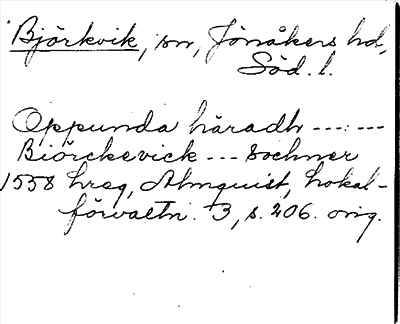 Björkvik, sn, Jönåkers hd,
Söd. l.
Oppunda häradh --- ---
Biörckevick --- Sochner
1558 hreg, Almquist, Lokal-
förvaltn. 3, s. 206. orig.